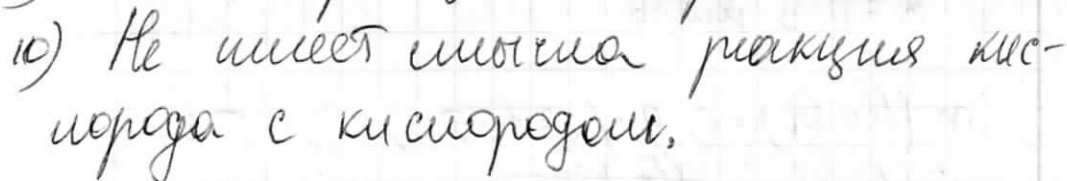 10) Не имеет смысла реакция кис-
лорода с кислородом.